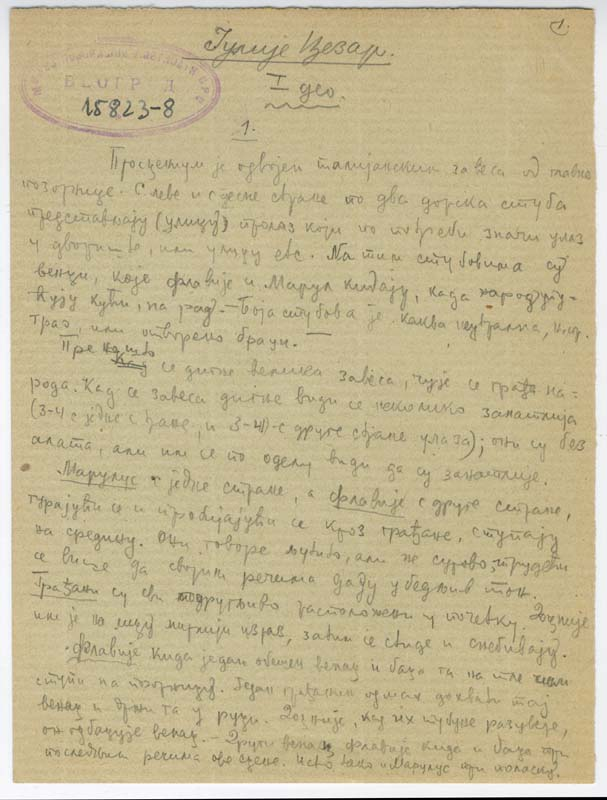 1.
Јулије Цезар.
БЕОГРАД
15823-8
I део.
1.
Просценијум је одвојен талијанском завесом од главне
позорнице. С леве и с десне стране по два дорска стуба
представљају (улицу) пролаз који по потреби значи улаз
у двориште, или улицу евс. На тим стубовима су
венци, које Флавије и Марул кидају, када народ упу-
ћују кући, на рад. — Боја стубова је каква неутрална, н.пр.
трао, или отворено браун.
Пре се дигне велика завеса, чује се граја на-
рода. Кад се завеса дигне види се неколико занатлија
(3-4 с једне стране, и 3-4)-с друге стране улаза); они су без
алата, али им се по оделу види да су занатлије.
Марулус с једне стране, а Флавије с друге стране,
гурајући се и пробијајући се кроз грађане, ступају
на средину. Они говоре љутито, али не сурово, трудећи
се више да својим речима даду убедљив тон.
Грађани су сви подругљиво расположени у почетку. Доцније
им је на лицу мирнији израз, затим се стиде и снебивају.
Флавије кида један обешен венац и баца га на тле чим
ступи на позорницу. Један грађанин одмах дохвати тај
венац и држи га у руци. Доцније, кад их трибуне разувере,
он одбацује венац. — Други венац Флавије кида и баца при
последњим речима ове сцене. Исто тако и Марулус при поласку.